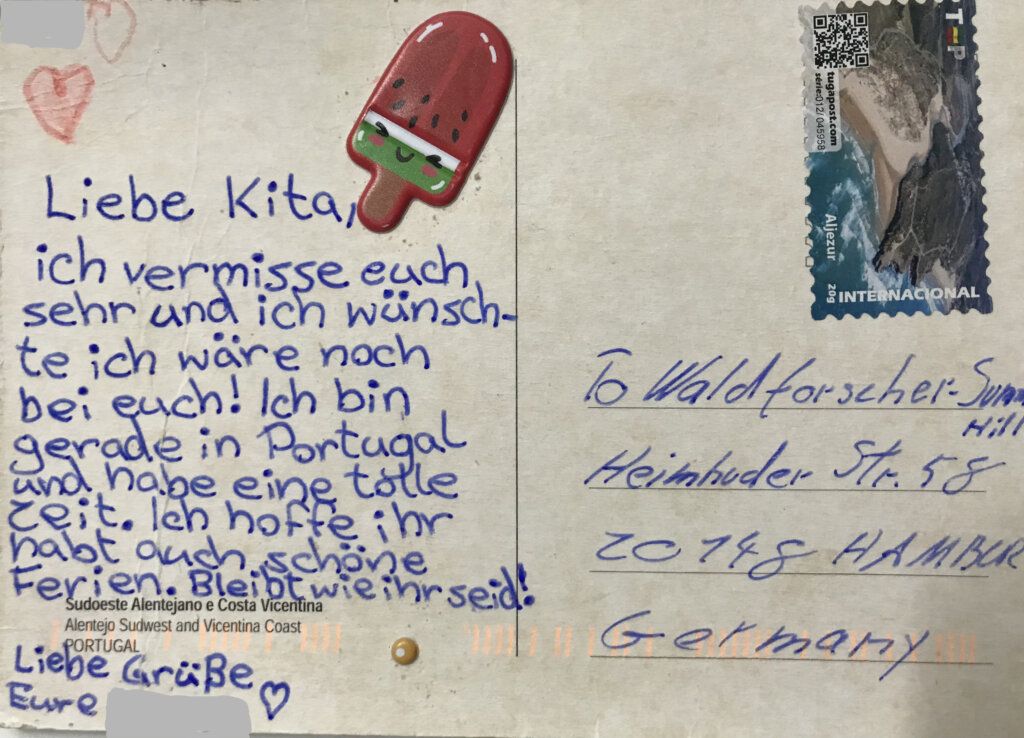 Liebe Kita,
ich vermisse euch
sehr und ich wünsch-
te ich wäre noch
bei euch! Ich bin
gerade in Portugal
und habe eine tolle
Zeit. Ich hoffe ihr
habt auch schöne
Ferien. Bleibt wie ihr seid!
Sudoeste Alentejano e Costa Vicentina
Alentejo Sudwest and Vicentina Coast
PORTUGAL
Liebe Grüße
Eure
6
TOP
tugapost.com
série:012/ 045958
Aljezur
20g INTERNACIONAL
To Waldforscher-Summ
Hill
Heimhuder Str. 58
20148 HAMBUR
Germany